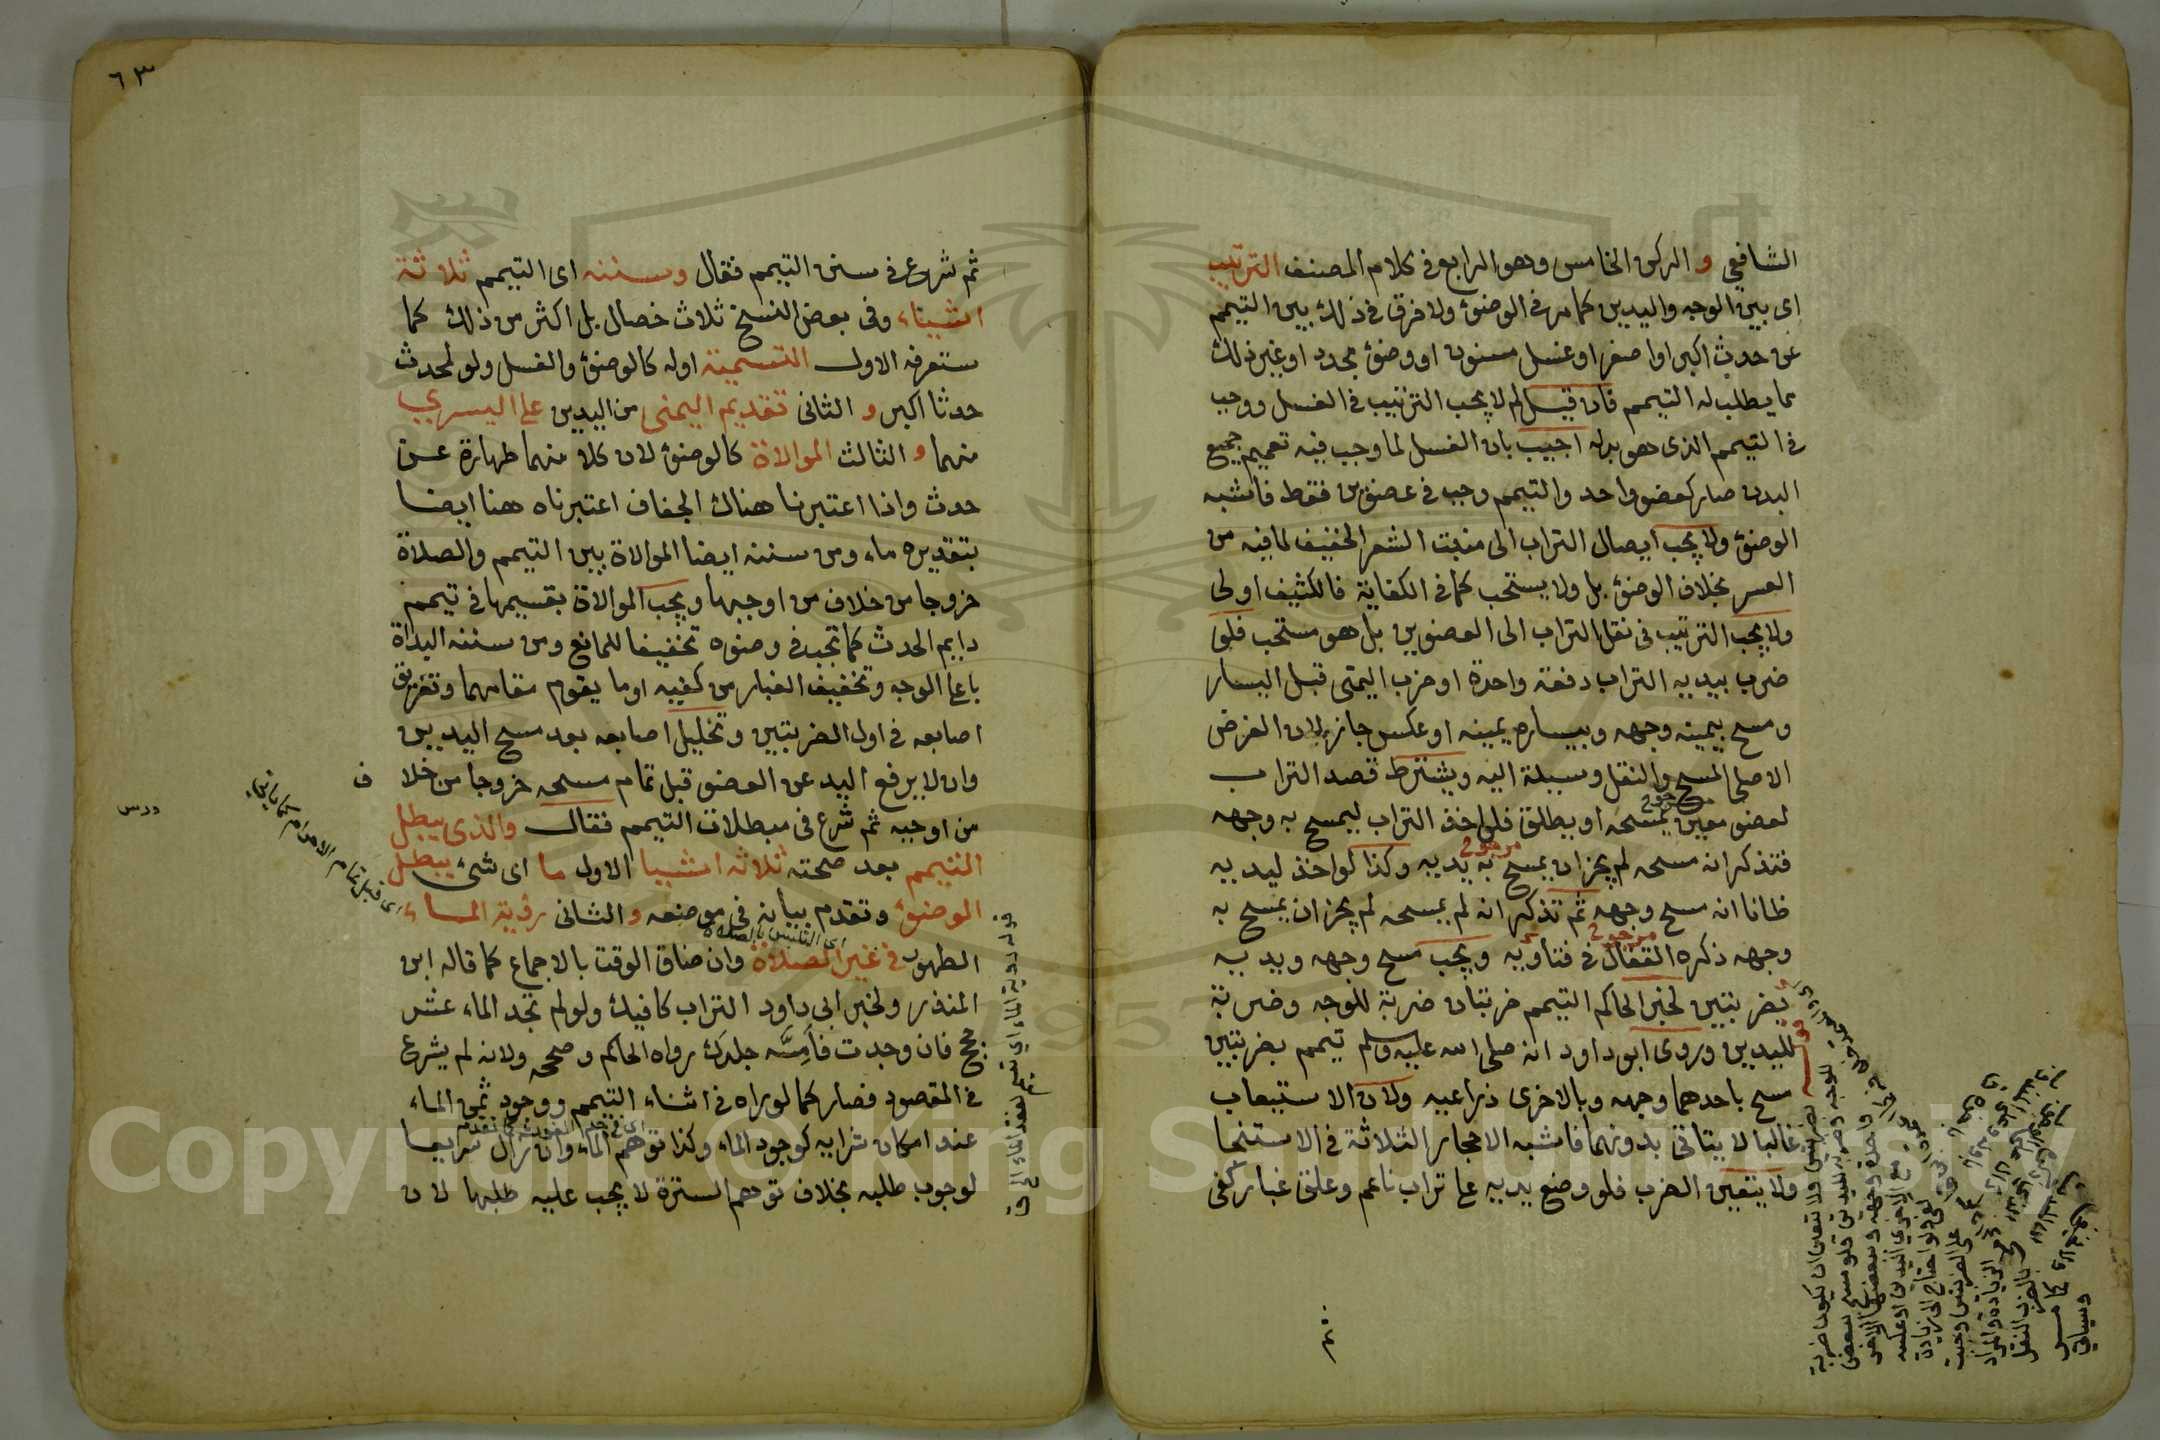 الشافعي و الركن الخامس وهو الرابع في كلام المصنف الترتيب
اى بين الوجه واليدين كما مر في الوضوء ولا فرق في ذلك بين التيمم
عن حدث اكبر او اصغر او غسل مسنون او وضوء مجدد او غير ذلك
مما يطلب له التيمم فان قيل لم لا يجب الترتيب في الغسل ووجب
في التيمم الذى هو بدله اجيب بان الغسل لما وجب فيه تعميم جميع
البدن صار كعضو واحد والتيمم وجب في عضوين فقط فاشبه
الوضوء ولا يجب ايصال التراب الى منبت الشعر الخفيف لما فيه من
العسر بخلاف الوضوء بل ولا يستحب كما في الكفاية فالكثيف اولى
ولا يجب الترتيب في نقل التراب الى العضوين بل هو مستحب فلو
ضرب بيديه التراب دفعة واحدة او ضرب اليمنى قبل اليسار
ومسح بيمينه وجهه وبيساره يمينه او عكس جاز لان الفرض
الاصلى المسح والنقل وسيلة اليه ويشترط قصد التراب
لعضو معين يمسحه او يطلق فلو اخذ التراب ليمسح به وجهه
فتذكر انه مسحه لم يجز ان يمسح به يديه وكذا لو اخذ ليديه
ظانا انه مسح وجهه ثم تذكر انه لم يمسحه لم يجز ان يمسح به
وجهه ذكره القفال في فتاويه ويجب مسح وجهه ويديه
بضربتين لخبر الحاكم التيمم ضربتان ضربة للوجه وضربة
لليدين وروى ابو داود انه صلى الله عليه وسلم تيمم بضربتين
مسح باحدهما وجهه وبالاخرى ذراعيه ولان الاستيعاب
غالبا لا يتاتى بدونهما فاشبه الاحجار الثلاثة في الاستنجا
ولا يتعين الضرب فلو وضع يديه على تراب ناعم وعلق غبار كفى
٦٣
ثم شرع في سنن التيمم فقال وسننه اى التيمم ثلاثة
اشياء وفى بعض النسخ ثلاث خصال بل اكثر من ذلك كما
ستعرفه الاول التسمية اوله كالوضوء والغسل ولو لمحدث
حدثا اكبر و الثانى تقديم اليمنى من اليدين على اليسرى
منهما و الثالث الموالاة كالوضوء لان كلا منهما طهارة عن
حدث واذا اعتبرنا هناك الجفاف اعتبرناه هنا ايضا
بتقديره ماء ومن سننه ايضا الموالاة بين التيمم والصلاة
خروجا من خلاف من اوجبها ويجب الموالاة بقسيمها في تيمم
دايم الحدث كما تجب في وضوه تخفيفا للمانع ومن سننه البداة
باعلى الوجه وتخفيف الغبار من كفيه او ما يقوم مقامهما وتفريق
اصابعه في اول الضربتين وتخليل اصابعه بعد مسح اليدين
وان لا يرفع اليد عن العضو قبل تمام مسحه خروجا من خلاف
من اوجبه ثم شرع في مبطلات التيمم فقال والذى يبطل
التيمم بعد صحته ثلاثه اشيا الاول ما اى شئ يبطل
الوضوء وتقدم بيانه في موضعه والثانى رؤية الماء
اى التلبس بالصلاة
الطهور في غير الصلاة وان ضاق الوقت بالاجماع كما قاله ابن
المنذر ولخبر ابى داود التراب كافيك ولو لم تجد الماء عشر
حجج فان وجدت فامسه جلدك رواه الحاكم وصححه ولانه لم يشرع
في المقصود فصار كما لو راه في اثناء التيمم ووجود ثمن الماء
عند امكان شرايه كوجود الماء وكذا توهم الماء وان زال سريعا
لوجوب طلبه بخلاف توهم السترة لا يجب عليه طلبها لان
درس
Copyright © King Saud University
1957